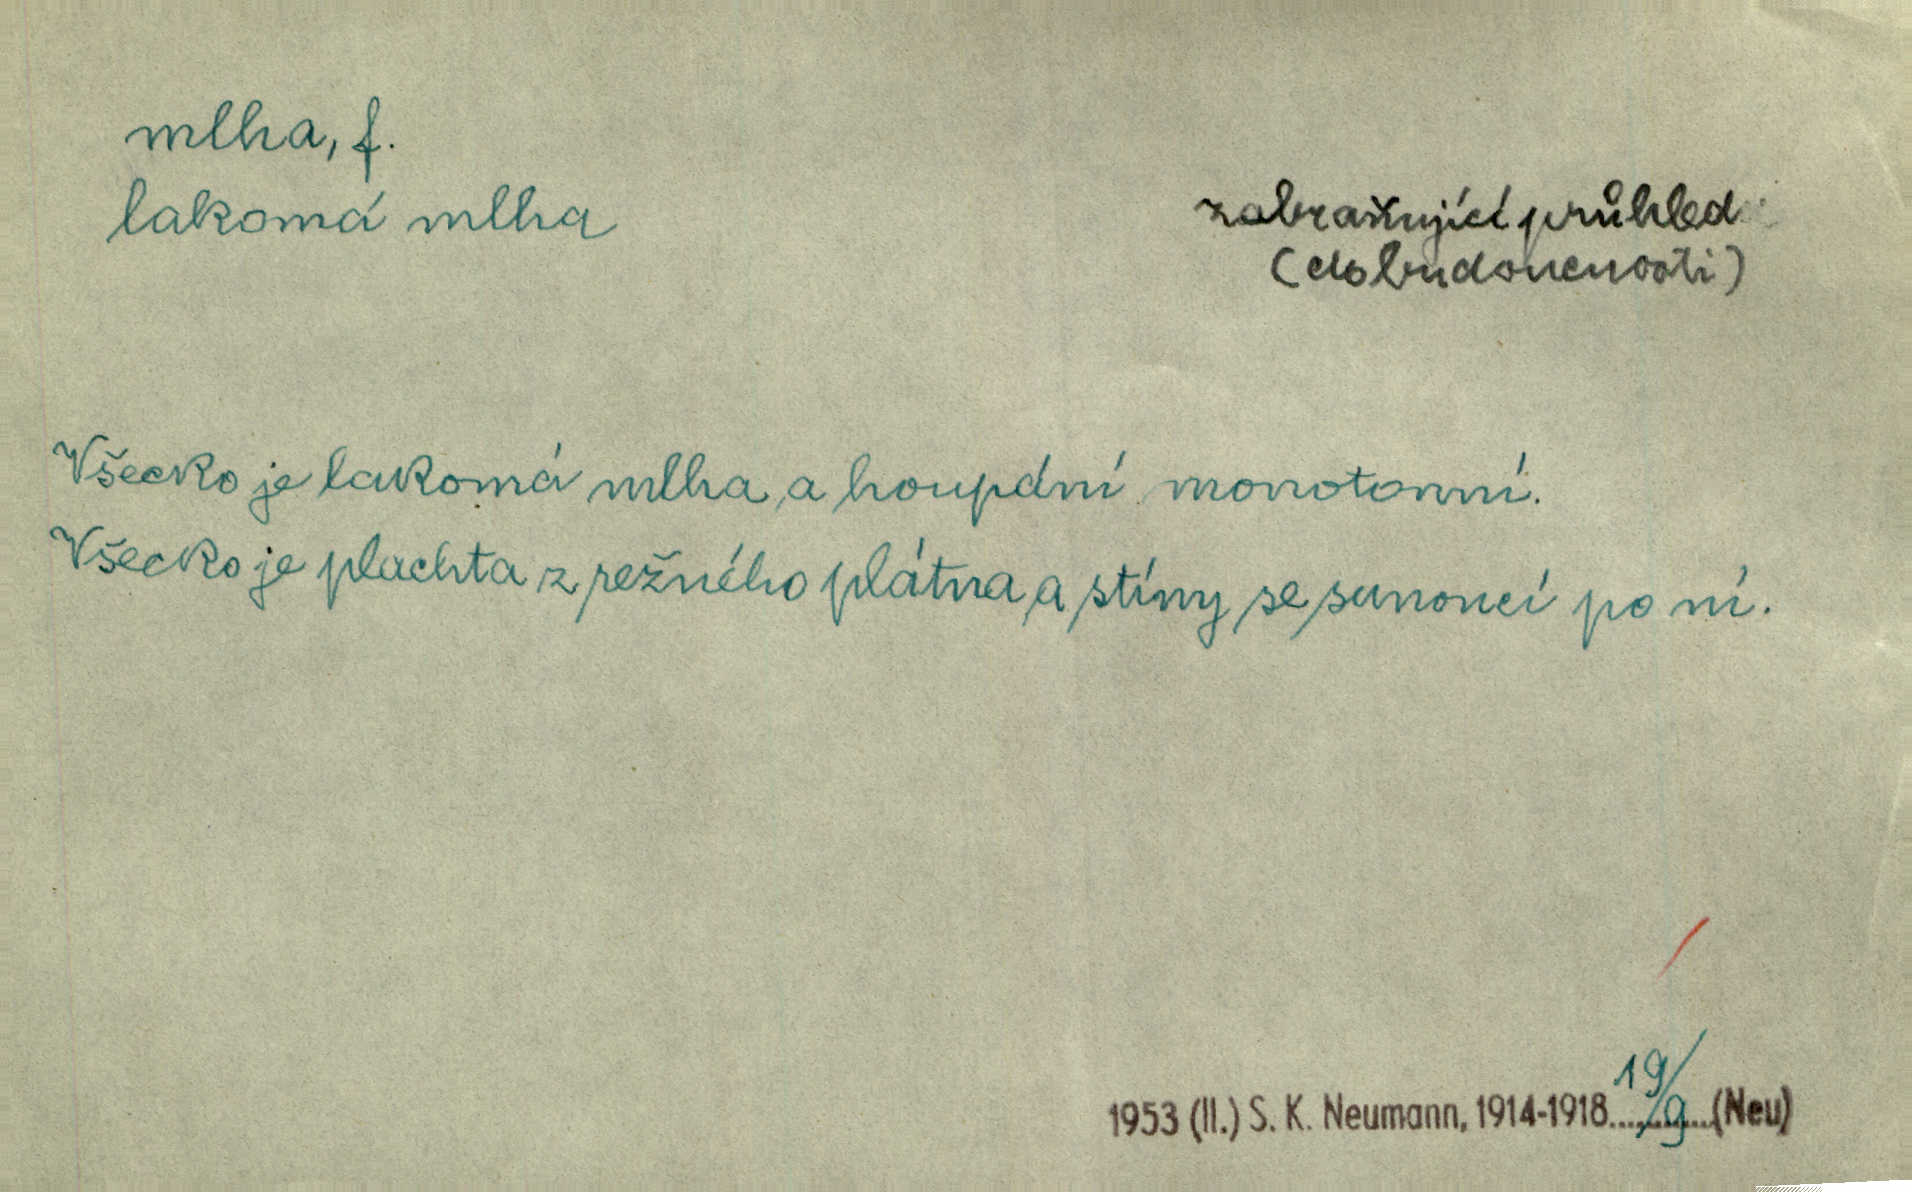 mlha, f.
lakomá mlha
zabraňující průhled
(do budoucnosti)
Všecko je lakomá mlha a houpání monotonní.
Všecko je plachta z režného plátna a stíny se sunoucí po ní.
1953 (II.) S. K. Neumann, 1914-1918 19/9 (Neu)